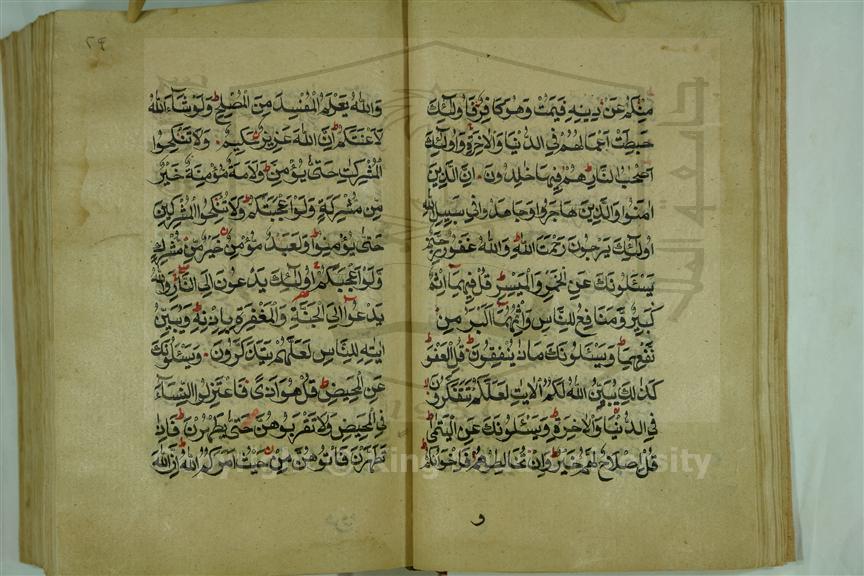 مِنْكُمْ عَنْ دِينِهِ فَيَمُتْ وَهُوَ كَافِرٌ فَاُولٰئِكَ
حَبِطَتْ اَعْمَالُهُمْ فِي الدُّنْيَا وَالْاٰخِرَةِ وَاُولٰئِكَ
اَصْحٰبُ النَّارِ هُمْ فِيهَا خٰلِدُونَ اِنَّ الَّذِينَ
اٰمَنُوا وَالَّذِينَ هَاجَرُوا وَجَاهَدُوا فِي سَبِيلِ اللّٰهِ
اُولٰئِكَ يَرْجُونَ رَحْمَتَ اللّٰهِ وَاللّٰهُ غَفُورٌ رَحِيمٌ
يَسْـَٔلُونَكَ عَنِ الْخَمْرِ وَالْمَيْسِرِ قُلْ فِيهِمَا اِثْمٌ
كَبِيرٌ وَمَنَافِعُ لِلنَّاسِ وَاِثْمُهُمَا اَكْبَرُ مِنْ
نَفْعِهِمَا وَيَسْـَٔلُونَكَ مَاذَا يُنْفِقُونَ قُلِ الْعَفْوَ
كَذٰلِكَ يُبَيِّنُ اللّٰهُ لَكُمُ الْاٰيٰتِ لَعَلَّكُمْ تَتَفَكَّرُونَ
فِي الدُّنْيَا وَالْاٰخِرَةِ وَيَسْـَٔلُونَكَ عَنِ الْيَتٰمٰى
قُلْ اِصْلَاحٌ لَهُمْ خَيْرٌ وَاِنْ تُخَالِطُوهُمْ فَاِخْوَانُكُمْ
و
٢٩
وَاللّٰهُ يَعْلَمُ الْمُفْسِدَ مِنَ الْمُصْلِحِ وَلَوْ شَاءَ اللّٰهُ
لَاَعْنَتَكُمْ اِنَّ اللّٰهَ عَزِيزٌ حَكِيمٌ وَلَا تَنْكِحُوا
الْمُشْرِكٰتِ حَتّٰى يُؤْمِنَّ وَلَاَمَةٌ مُؤْمِنَةٌ خَيْرٌ
مِنْ مُشْرِكَةٍ وَلَوْ اَعْجَبَتْكُمْ وَلَا تُنْكِحُوا الْمُشْرِكِينَ
حَتّٰى يُؤْمِنُوا وَلَعَبْدٌ مُؤْمِنٌ خَيْرٌ مِنْ مُشْرِكٍ
وَلَوْ اَعْجَبَكُمْ اُولٰئِكَ يَدْعُونَ اِلَى النَّارِ وَاللّٰهُ
يَدْعُوا اِلَى الْجَنَّةِ وَالْمَغْفِرَةِ بِاِذْنِهِ وَيُبَيِّنُ
اٰيٰتِهِ لِلنَّاسِ لَعَلَّهُمْ يَتَذَكَّرُونَ وَيَسْـَٔلُونَكَ
عَنِ الْمَحِيضِ قُلْ هُوَ اَذًى فَاعْتَزِلُوا النِّسَاءَ
فِي الْمَحِيضِ وَلَا تَقْرَبُوهُنَّ حَتّٰى يَطْهُرْنَ فَاِذَا
تَطَهَّرْنَ فَاْتُوهُنَّ مِنْ حَيْثُ اَمَرَكُمُ اللّٰهُ اِنَّ اللّٰهَ